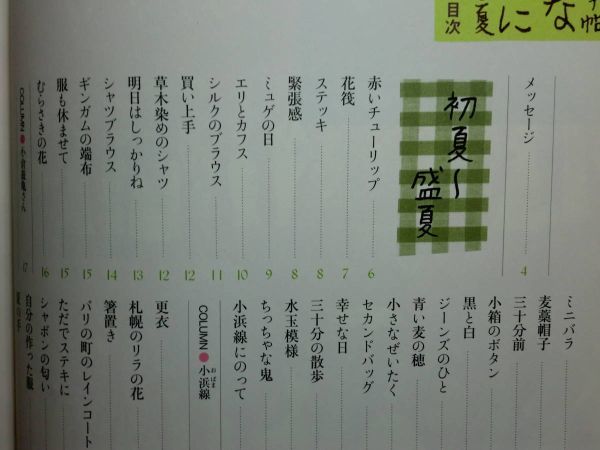 帖
な
に
夏
目次
メッセージ 4
初夏〜
盛夏
赤いチューリップ 6
花筏 7
ステッキ 8
緊張感 8
ミュゲの日 9
エリとカフス 10
シルクのブラウス 11
買い上手 12
草木染めのシャツ 12
明日はしっかりね 13
シャツブラウス 14
ギンガムの端布 15
服も休ませて 15
むらさきの花 16
COLUMN●小倉遊亀さん 17
ミニバラ
麦藁帽子
三十分前
小箱のボタン
黒と白
ジーンズのひと
青い麦の穂
小さなぜいたく
セカンドバッグ
幸せな日
三十分の散歩
水玉模様
ちっちゃな鬼
小浜線にのって
COLUMN●小浜線
おばま
更衣
札幌のリラの花
箸置き
パリの町のレインコート
ただでステキに
シャボンの匂い
自分の作った服